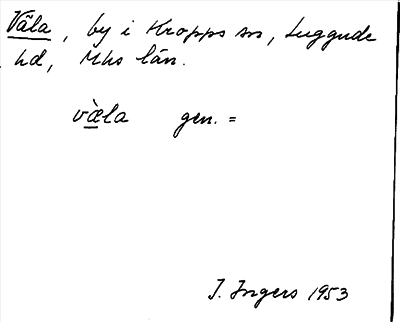 Väla, by i Kropps sn, Luggude
hd, Mhs län.
vælа gen. =
I. Ingers 1953